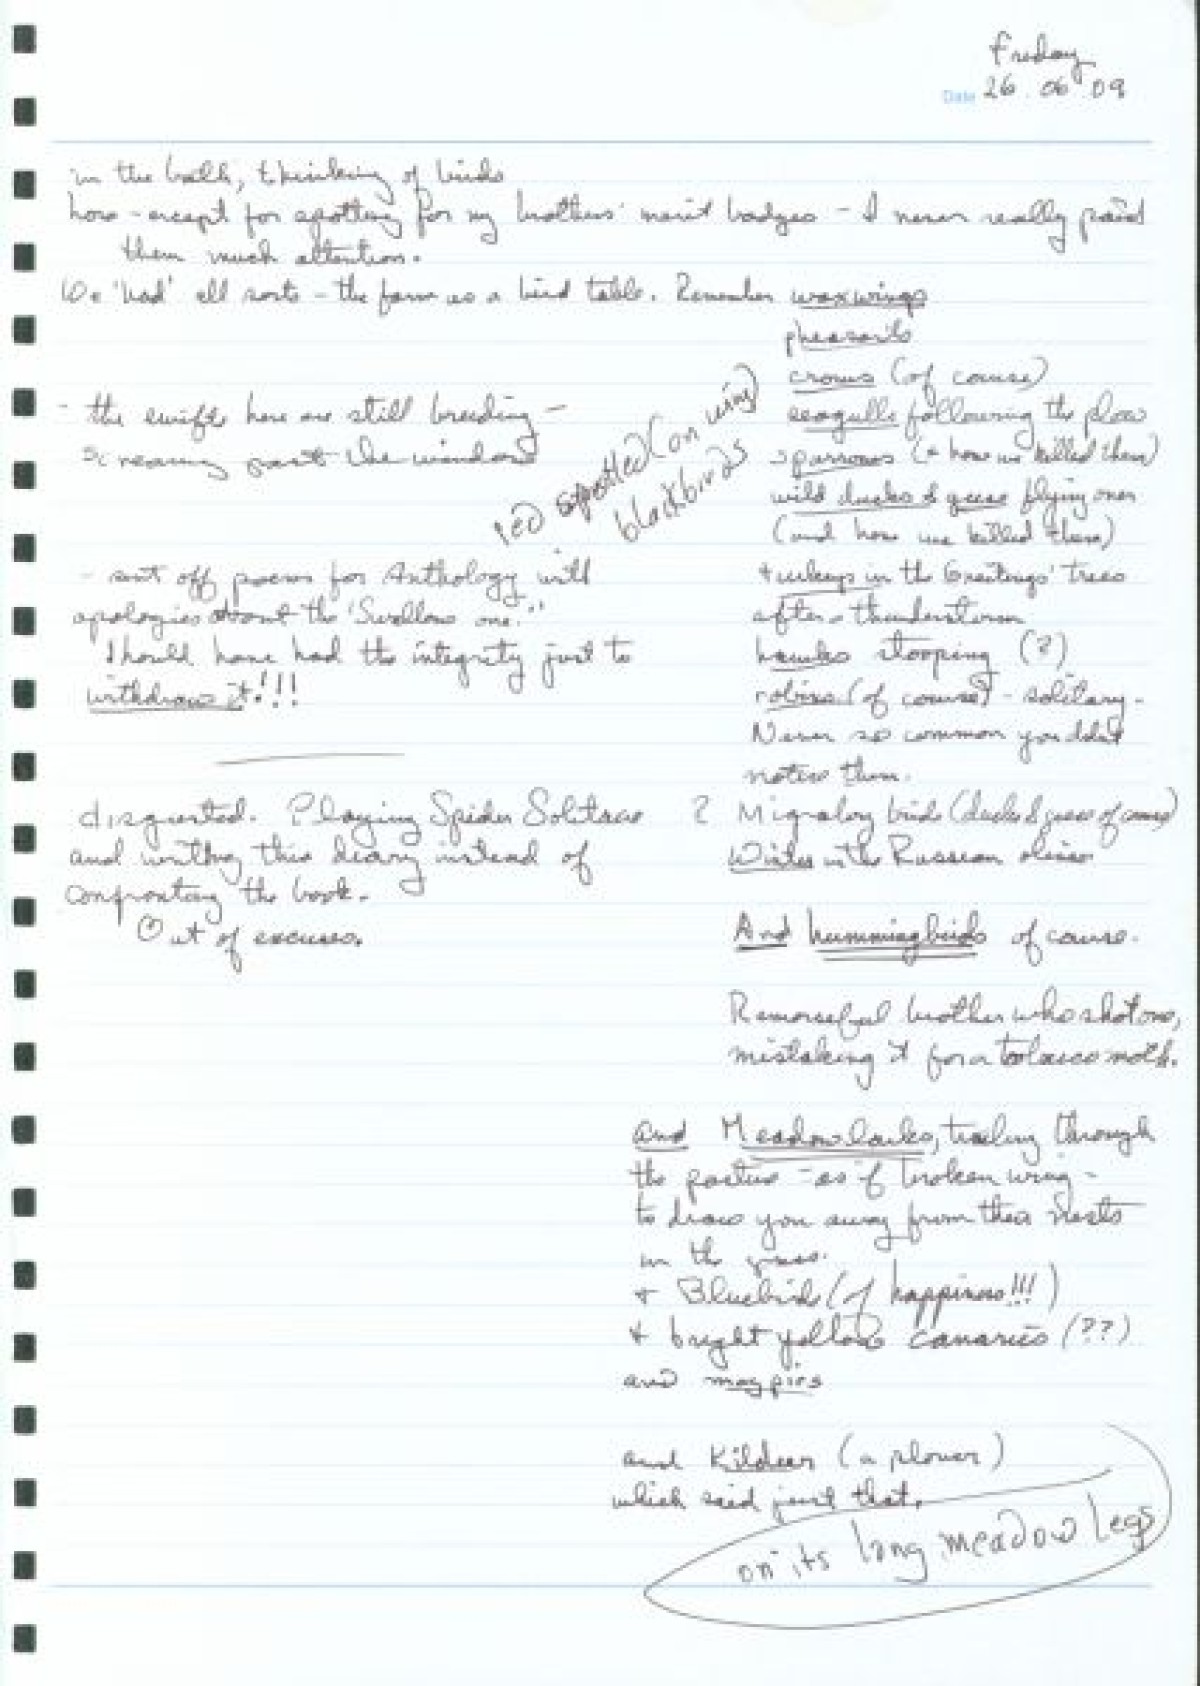 Friday
Date 26.06.09
in the bath, thinking of birds
how - except for spotting for my brothers' merit badges - I never really paid
them much attention.
We 'had' all sorts - the farm as a bird table. Remember waxwings
pheasants
crows (of course)
seagulls following the plow
sparrows (& how we killed them)
wild ducks & geese flying over
(and how we killed them)
turkeys in the Greetings' trees
after a thunderstorm
hawks stooping (?)
robins (of course) - solitary -
Never so common you didn't
notice them.
? Migratory birds (ducks & geese of course)
Winter in the Russian olives
And hummingbirds of course.
Remorseful brother who shot one,
mistaking it for a tobacco moth.
and Meadowlarks, trailing through
the pasture - as if broken wing -
to draw you away from their nests
in the grass.
+ Bluebirds (of happiness!!!)
+ bright yellow canaries (??)
and magpies
and Kildeer (a plover)
which said just that.
on its long meadow legs
red spotted (on wing)
blackbirds
- the swifts here are still breeding -
screaming past the windows
- sent off poems for Anthology with
apologies about the 'Swallows one.'
Should have had the integrity just to
withdraw it!!!
disgusted. Playing Spider Solitaire
and writing this diary instead of
confronting the book.
Out of excuses.